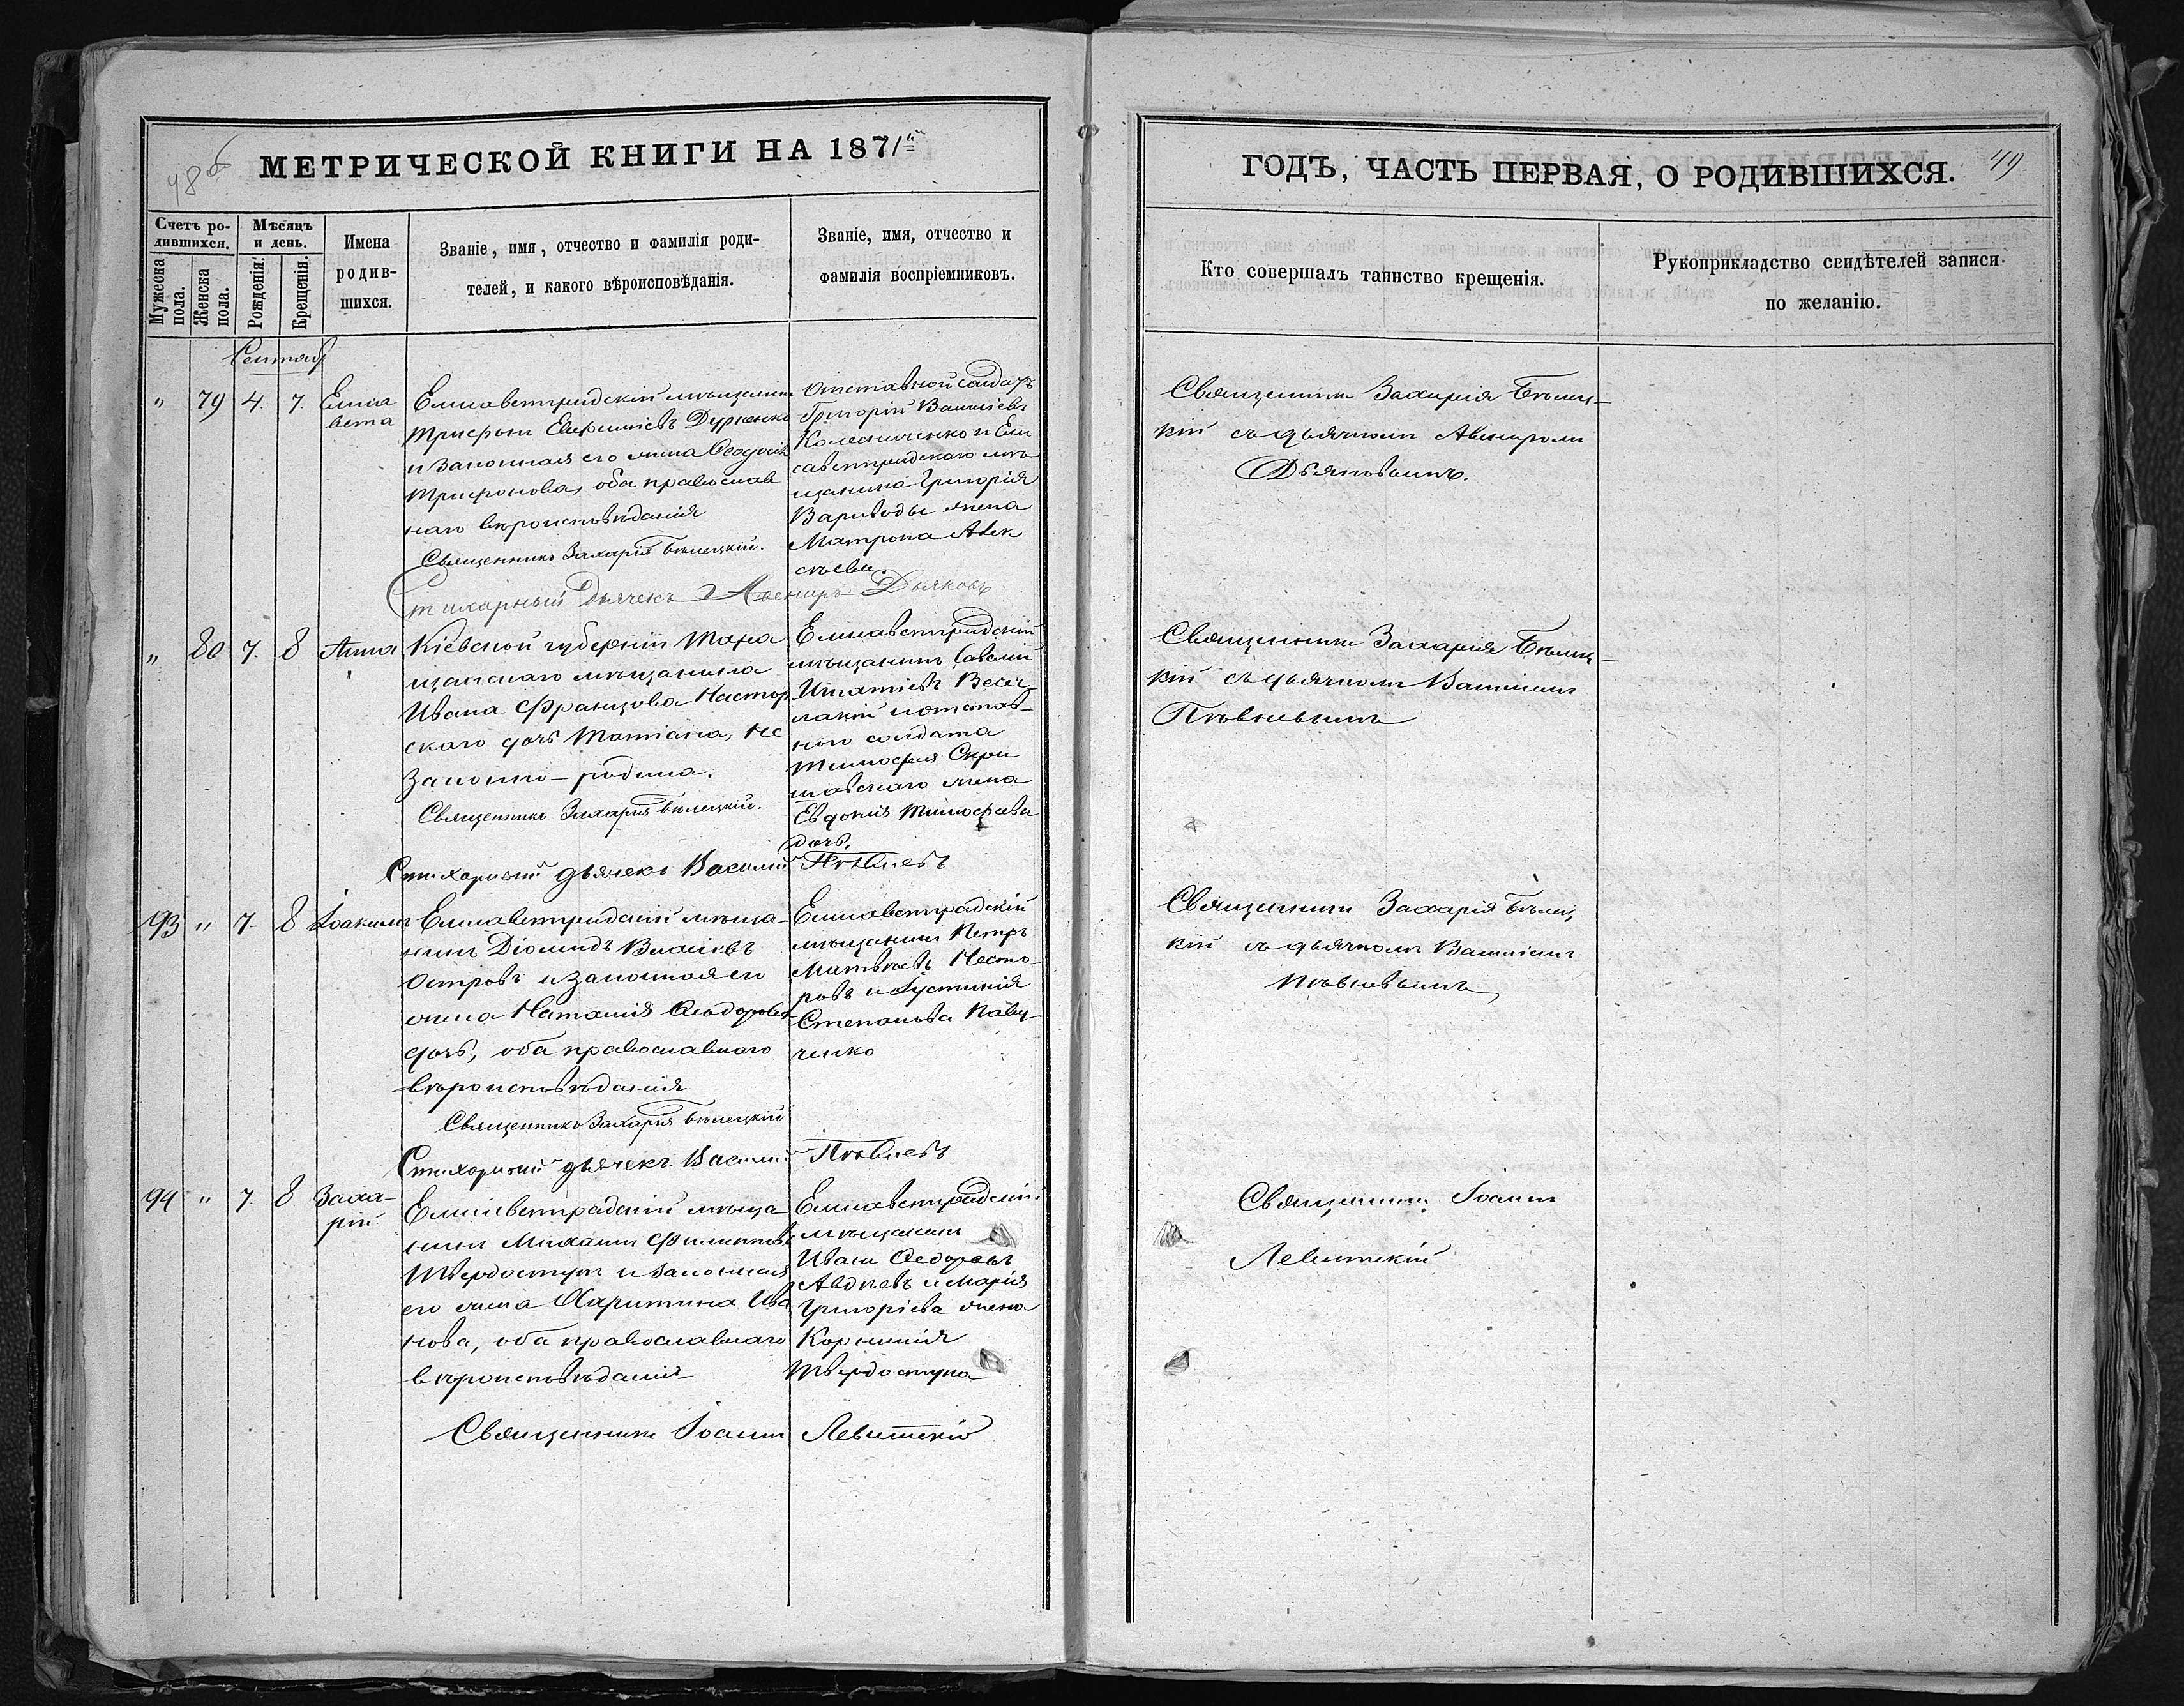 48 об
МЕТРИЧЕСКОЙ КНИГИ НА 1871й
Счетъ ро-
дившихся.
Мужеска
пола.
Женска
пола.
Мѣсяцъ
и день.
Рожденія.
Крещенія.
Имена
родив-
шихся.
Званіе, имя, отчество и фамилія роди-
телей, и какого вѣроисповѣданія.
Званіе, имя, отчество и
фамилія воспріемниковъ.
Сентяб
" 79 4. 7. Елиса
вета
Елисаветградскій мѣщанинъ
Трифонъ Евфиміевъ
и законная его жена Ѳеодосія
Трифонова, оба православ
наго вѣроисповѣданія
Священникъ Захарія Бѣлецкій.
Стихарный Дьячекъ Авениръ Дьяковъ
Отставной солдатъ
Григорій Василіевъ
Колесниченко и Ели
саветградскаго мѣ
щанина Григорія
Вариводы жена
Матрона Алек
сѣева.
" 80 7. 8 Анна
Кіевской губерніи Тара
щанскаго мѣщанина
Ивана Францова Настор
скаго дочь Татіана, не
законно-родила.
Священникъ Захарія Бѣлецкій.
Стихарный дьячекъ Василій Пѣвневъ
Елисаветградскій
мѣщанинъ Савелій
Игнатіевъ
и отстав-
ного солдата
Тимофея
жена
Евдокія Тимофеева
дочь.
93 " 7. 8 Іоакимъ
Елисаветградскій мѣща-
нинъ Діомидъ Власіевъ
Островъ и законная его
жена Наталія Ѳеодорова
дочь, оба православнаго
вѣроисповѣданія
Священникъ Захарія Бѣлецкій
Стихарный дьячекъ Василій Пѣвневъ
Елисаветградскій
мѣщанинъ Петръ
Матвѣевъ Несто-
ровъ и Іустинія
Степанова Кавц-
ченко
94 " 7. 8 Заха-
рій
Елисаветградскій мѣща
нинъ Михаилъ Филиповъ
Твердоступъ и законная
его жена Харитина Ива
нова, оба православнаго
вѣроисповѣданія
Священникъ Іоаннъ Левитскій
Елисаветградскій
мѣщанинъ
Иванъ Ѳедоровъ
Авдѣевъ и Марія
Григоріева жена
Корнилія
Твердоступа
ГОДЪ, ЧАСТЬ ПЕРВАЯ, О РОДИВШИХСЯ. 49.
Кто совершалъ таинство крещенія.
Рукоприкладство свидѣтелей записи
по желанію.
Священникъ Захарія Бѣлец-
кій съ дьячкомъ Авениромъ
Дьяковымъ.
Священникъ Захарія Бѣлец-
кій съ дьячкомъ Василіемъ
Пѣвневымъ
Священникъ Захарія Бѣлец
кій съ дьячкомъ Василіемъ
Пѣвневымъ
Священникъ Іоаннъ
Левитскій